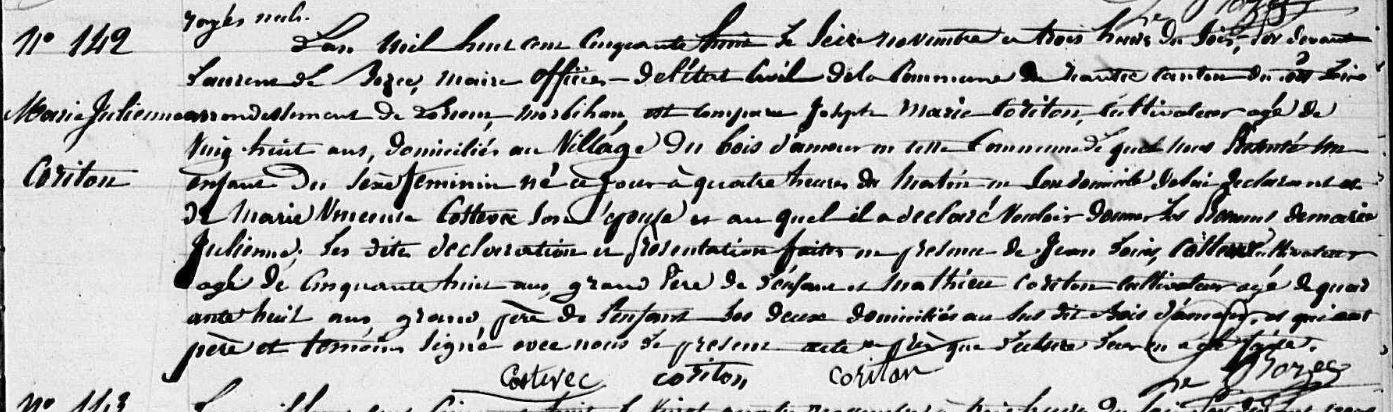 rayés nuls.
N° 142
L'an mil huit cent cinquante huit le seize novembre à trois heures du soir, par devant
Laurent Le Rozec, maire officier de l'état civil de la Commune de canton du
Marie Julienne arrondissement de Lorient, morbihan, est comparu Joseph Marie Coriton, Cultivateur agé de
Vingt huit ans, domicilié au Village du bois d'amour en cette Commune lequel nous a présenté un
Coriton
enfant du sexe féminin né ce jour à quatre heures du matin en son domicile de lui déclarant et
de Marie Vincente Costevec son épouse et au quel il a déclaré vouloir donner les prénoms de marie
Julienne. Les dites déclaration et présentation faites en présence de Jean Louis cultivateur
agé de cinquante huit ans, grand Père de l'enfant et Mathieu Coriton cultivateur agé de quar
ante huit ans grand père de l'enfant les deux domiciliés au sus dit Bois d'amour, et qui ont
père et témoins signé avec nous le présent acte après que lecture leur en a été faite.
Costevec coriton coriton Le Rozec
N° 143